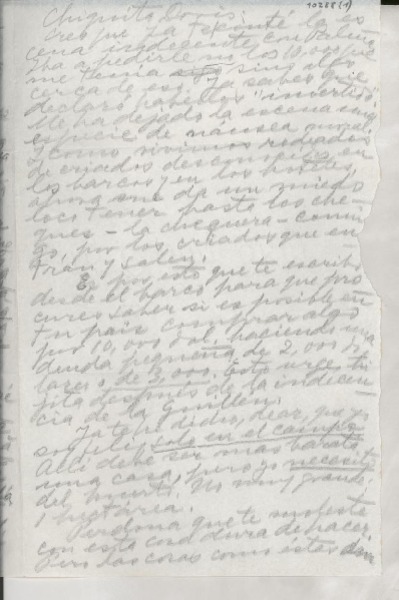 10288 (1)
Chiquita Doris:
Creo que ya te conté la es
cena indecente con
iba a pedirle no los 10.000 que
me tenía sino algo
cerca de eso. Ya sabes que
declaró haberlos "invertido".
Me ha dejado la escena una
especie de náusea moral.
Y como vivimos rodeados
de criados desconocidos en
los barcos y en los hoteles,
ahora me da un miedo
loco tener hasta los che-
ques - la chequera - conmi
go, por los criados que en
tran y salen.
Es por esto que te escribo
desde el barco para que pro
cures saber si es posible en
tu país comprar algo
por 10,000 dol, haciendo una
deuda pequeña de 2,000 dó
lares o de 3,000. Esto urge, hi
jita después de la indecen
cia de la Guillén.
Ya te he dicho, dear, que yo
soy feliz solo en el campo.
Allí debe ser más barata
una casa, pero yo necesito
del huerto. No muy grande,
1 hectárea.
Perdona que te moleste
con esta cosa dura de hacer.
Pero las cosas como están